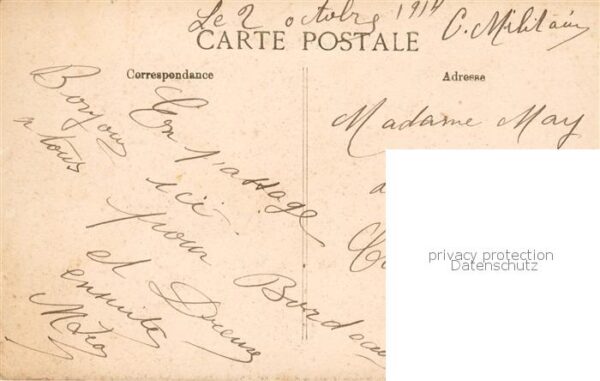 Le 2 octobre 1914 C. Militaire
CARTE POSTALE
Correspondance
Adresse
Bonjour
a tous
En passage
ici
pour Bordeaux
et Dreux
ensuite
Madame May
privacy protection
Datenschutz